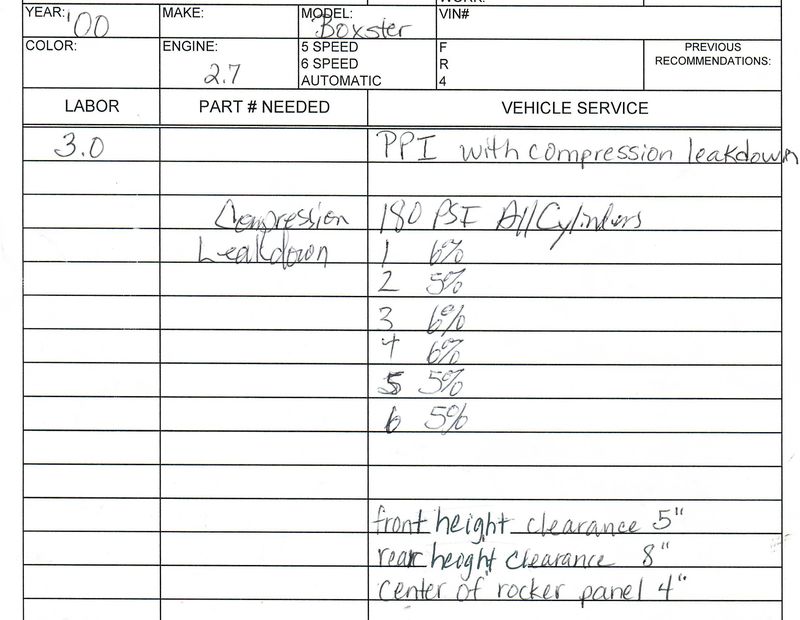 WORK:
YEAR: '00 MAKE: MODEL: Boxster VIN#
COLOR: ENGINE: 2.7 5 SPEED F PREVIOUS
6 SPEED R RECOMMENDATIONS:
AUTOMATIC 4
LABOR PART # NEEDED VEHICLE SERVICE
3.0 PPI with compression leakdown
Compression 180 PSI All Cylinders
Leakdown 1 6%
2 5%
3 6%
4 6%
5 5%
6 5%
front height clearance 5"
rear height clearance 8"
center of rocker panel 4"